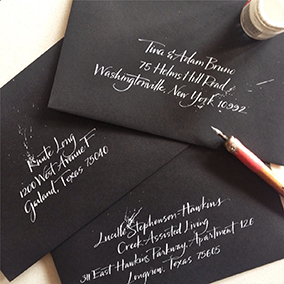 Tina & Adam Bruno
75 Helms Hill Road
Washingtonville, New York 10992
Private Long
1200 West Avenue F
Garland, Texas 75040
Lucille Stephenson-Hawkins
Creek Assisted Living
311 East Hawkins Parkway, Apartment 126
Longview, Texas 75605